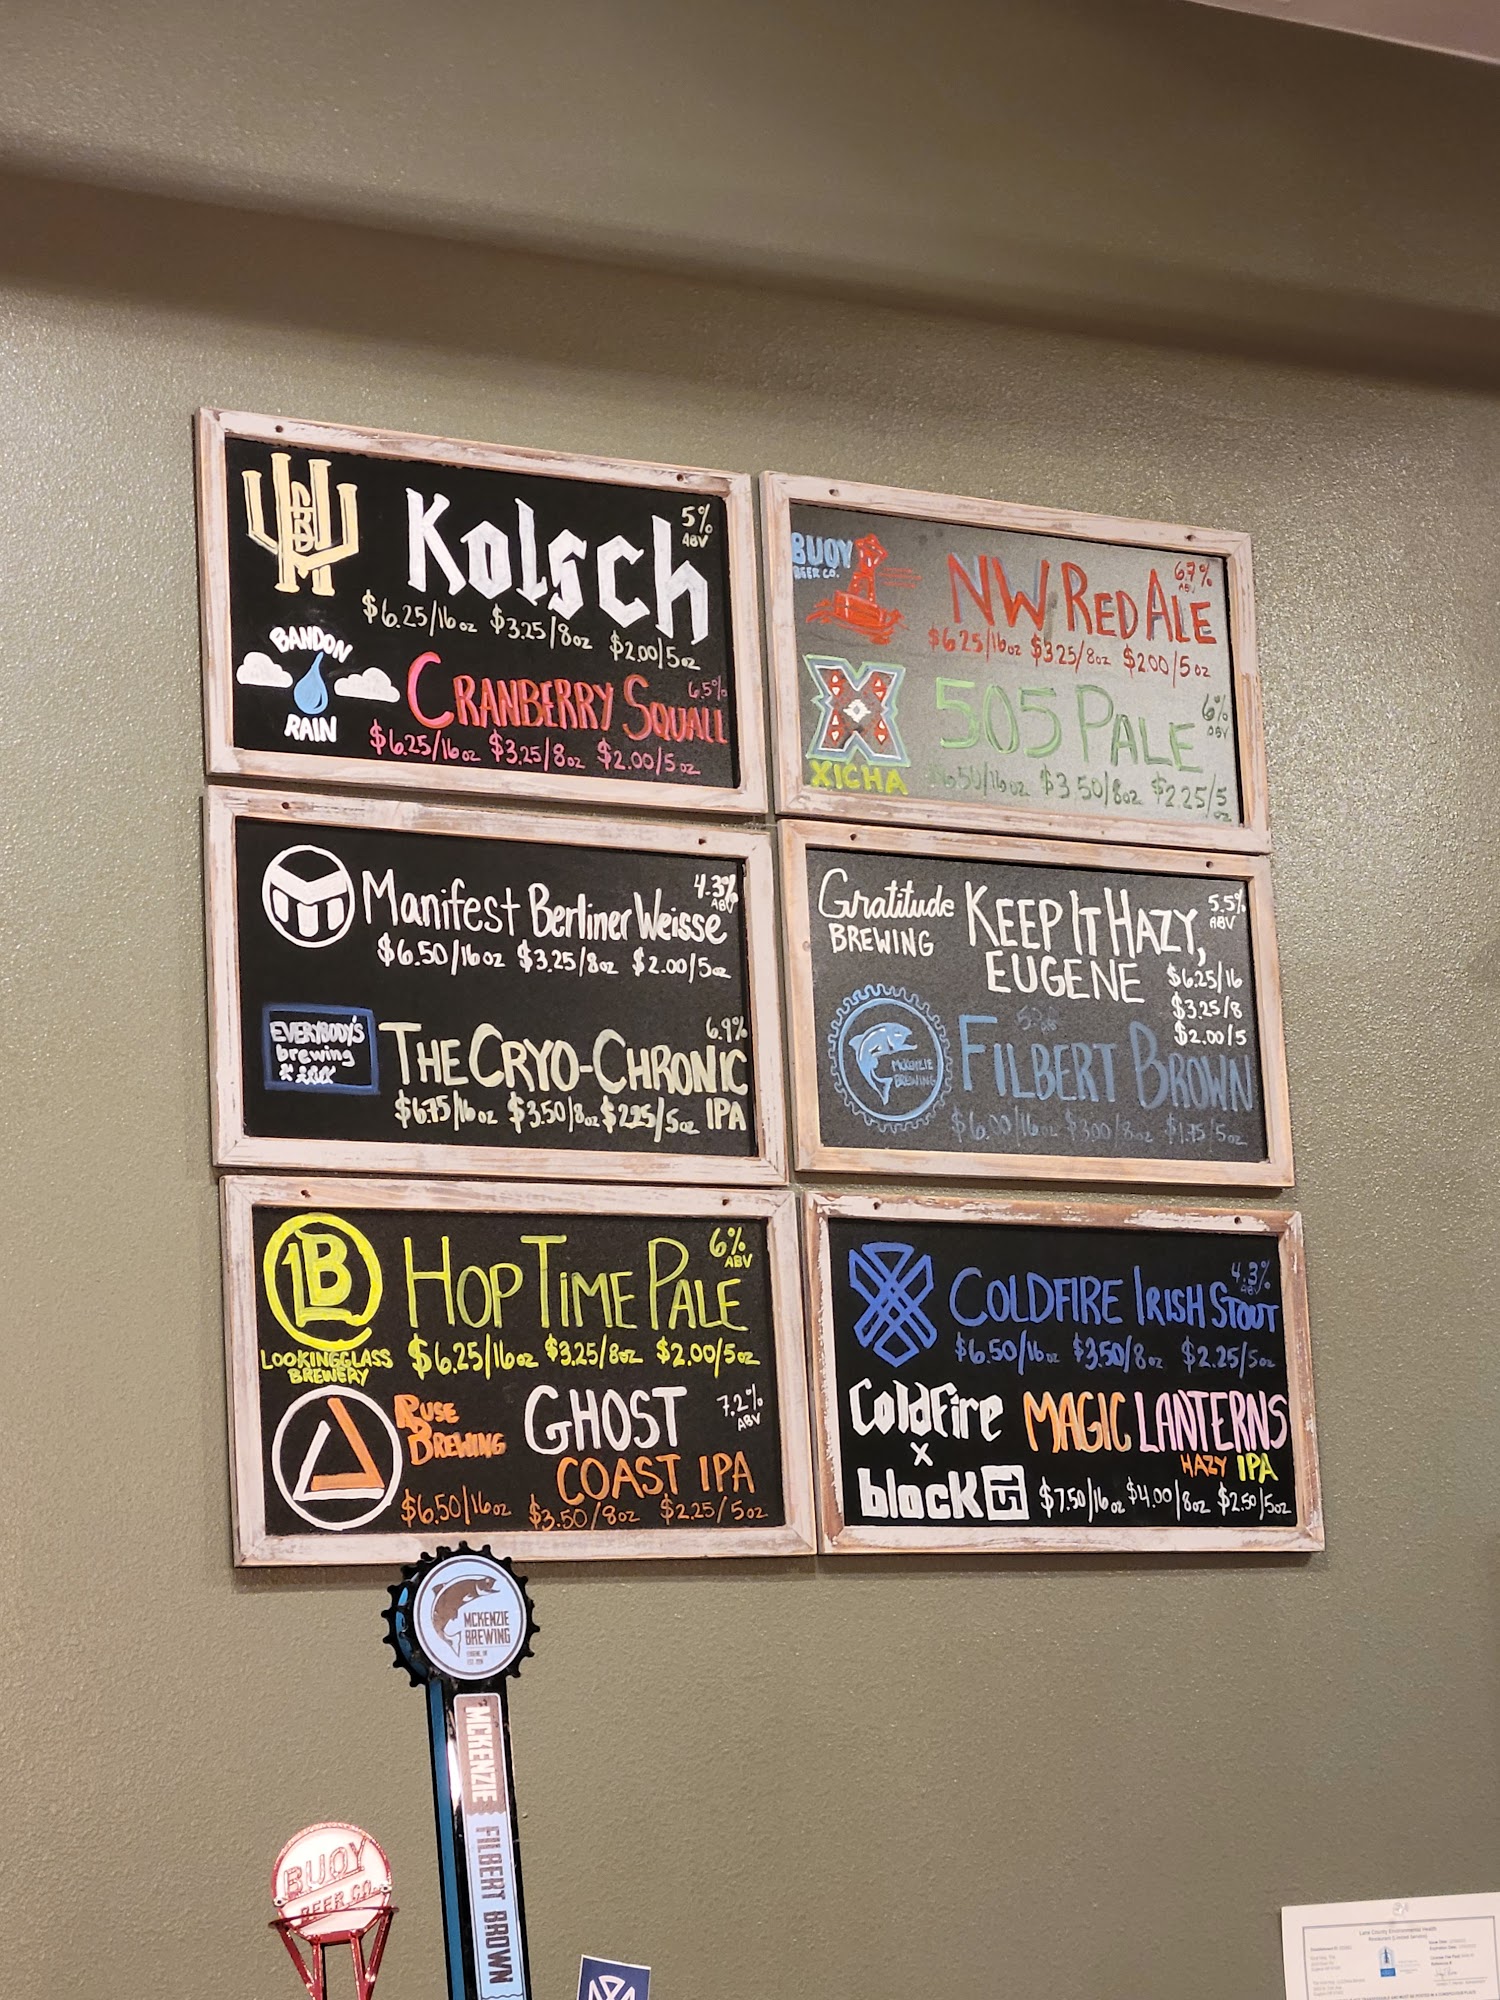 Kolsch
5%
ABV
$6.25/16oz $3.25/8oz $2.00/5oz
BANDON
RAIN
CRANBERRY SQUALL
6.5%
$6.25/16oz $3.25/8oz $2.00/5oz
BUOY
BEER CO.
NW RED ALE
6.7%
ABV
$6.25/16oz $3.25/8oz $2.00/5oz
XICHA
505 PALE
6%
ABV
$6.50/16oz $3.50/8oz $2.25/5
oz
Manifest Berliner Weisse
4.3%
ABV
$6.50/16oz $3.25/8oz $2.00/5oz
EVERYBODY'S
brewing
THE CRYO-CHRONIC
6.9%
IPA
$6.75/16oz $3.50/8oz $2.25/5oz
Gratitude
BREWING
KEEP IT HAZY,
EUGENE
5.5%
ABV
$6.25/16
$3.25/8
$2.00/5
MCKENZIE
BREWING
FILBERT BROWN
$6.00/16oz $3.00/8oz $1.75/5oz
LB
LOOKINGGLASS
BREWERY
HOP TIME PALE
6%
ABV
$6.25/16oz $3.25/8oz $2.00/5oz
RUSE
BREWING
GHOST
COAST IPA
7.2%
ABV
$6.50/16oz $3.50/8oz $2.25/5oz
COLDFIRE IRISH STOUT
4.3%
ABV
$6.50/16oz $3.50/8oz $2.25/5oz
ColdFire
x
block 15
MAGIC LANTERNS
HAZY IPA
$7.50/16oz $4.00/8oz $2.50/5oz
MCKENZIE
BREWING
MCKENZIE
FILBERT BROWN
BUOY
BEER CO.
Lane County Environmental Health